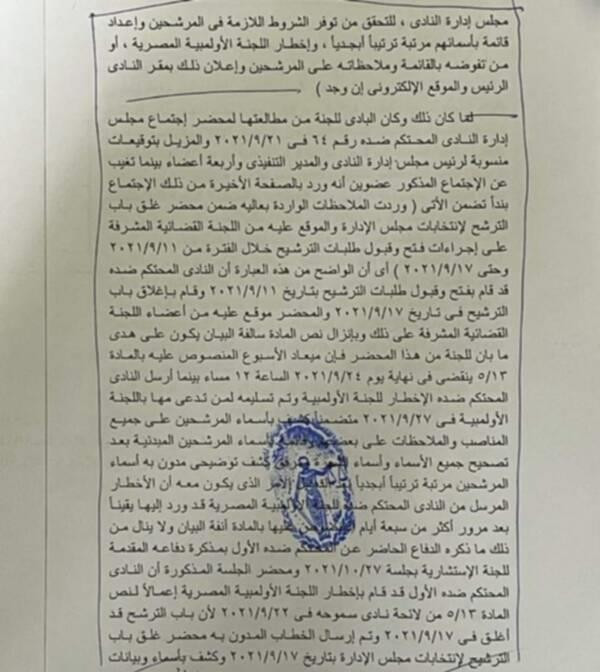 مجلس إدارة النادى ، للتحقق من توفر الشروط اللازمة فى المرشحين وإعداد
قائمة بأسمائهم مرتبة ترتيباً أبجدياً ، وإخطار اللجنة الأولمبية المصرية ، أو
من تفوضه بالقائمة وملاحظاته على المرشحين وإعلان ذلك بمقر النادى
الرئيس والموقع الإلكترونى إن وجد )
لما كان ذلك وكان البادى للجنة من مطالعتها لمحضر إجتماع مجلس
إدارة النادى المحتكم ضده رقم ٦٤ فى ٢٠٢١/٩/٢١ والمزيل بتوقيعات
منسوبة لرئيس مجلس إدارة النادى والمدير التنفيذى وأربعة أعضاء بينما تغيب
عن الإجتماع المذكور عضوين أنه ورد بالصفحة الأخيرة من ذلك الإجتماع
بنداً تضمن الأتى ( وردت الملاحظات الواردة بعاليه ضمن محضر غلق باب
الترشح لإنتخابات مجلس الإدارة والموقع عليه من اللجنة القضائية المشرفة
على إجراءات فتح وقبول طلبات الترشيح خلال الفترة من ٢٠٢١/٩/١١
وحتى ٢٠٢١/٩/١٧ ) أى أن الواضح من هذه العبارة أن النادى المحتكم ضده
قد قام بفتح وقبول طلبات الترشيح بتاريخ ٢٠٢١/٩/١١ وقام بإغلاق باب
الترشيح فى تاريخ ٢٠٢١/٩/١٧ والمحضر موقع عليه من أعضاء اللجنة
القضائية المشرفة على ذلك وبإنزال نص المادة سالفة البيان يكون على هدى
ما بان للجنة من هذا المحضر فإن ميعاد الأسبوع المنصوص عليه بالمادة
٥/١٣ ينقضى فى نهاية يوم ٢٠٢١/٩/٢٤ الساعة ١٢ مساء بينما أرسل النادى
المحتكم ضده الإخطار للجنة الأولمبية وتم تسليمه لمن تدعى مها باللجنة
الأولمبية فى ٢٠٢١/٩/٢٧ متضمناً كشف بأسماء المرشحين على جميع
المناصب والملاحظات على بعضهم وقائمة بأسماء المرشحين المبدئية بعد
تصحيح جميع الأسماء وأسماء الشهرة ومرفق كشف توضيحى مدون به أسماء
المرشحين مرتبة ترتيباً أبجدياً الأمر الذى يكون معه أن الأخطار
المرسل من النادى المحتكم ضده للجنة الأولمبية المصرية قد ورد إليها يقيناً
بعد مرور أكثر من سبعة أيام المنصوص عليها بالمادة أنفة البيان ولا ينال من
ذلك ما ذكره الدفاع الحاضر عن المحتكم ضده الأول بمذكرة دفاعه المقدمة
للجنة الإستشارية بجلسة ٢٠٢١/١٠/٢٧ ومحضر الجلسة المذكورة أن النادى
المحتكم ضده الأول قد قام بإخطار اللجنة الأولمبية المصرية إعمالاً لنص
المادة ٥/١٣ من لائحة نادى سموحه فى ٢٠٢١/٩/٢٢ لأن باب الترشح قد
أغلق فى ٢٠٢١/٩/١٧ وتم إرسال الخطاب المدون به محضر غلق باب
الترشيح لإنتخابات مجلس الإدارة بتاريخ ٢٠٢١/٩/١٧ وكشف بأسماء وبيانات